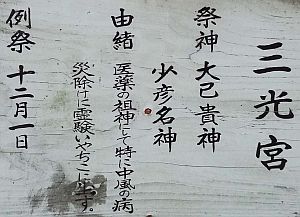 三光宮
祭神 大己貴神
少彦名神
由緒 医薬の祖神にして特に中風の病
災除けに霊験いやちこ
例祭 十二月一日